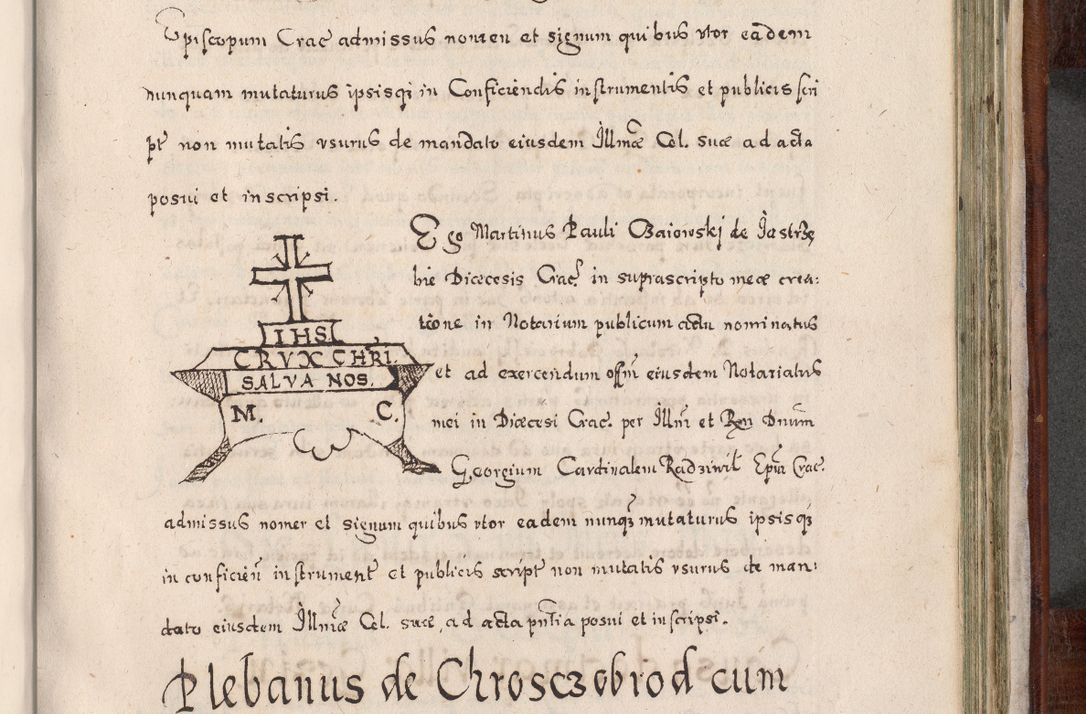 Episcopum Crac admissus nomen et signum quibus vtor eadem
nunquam mutaturus ipsisqȝ in Conficiendis instrumentis et publicis scri
pt non mutatis vsurus de mandato eiusdem Illmæ Cel. suæ ad acta
posui et inscripsi.
Ego Martinus Pauli Czaiowskj de Jastrzę
bie Diœcesis Crac. in suprascripto meæ crea:
tione in Notarium publicum actu nominatus
IHS
CRVX CHRI.
SALVA NOS.
M. C.
et ad exercendum offm eiusdem Notariatus
mei in Diœcesi Crac. per Illm et Rdn Dnum
Georgium Cardinalem Radziwil Epm Crac.
admissus nomen et signum quibus vtor eadem nunqȝ mutaturus ipsisqȝ
in conficien instrument et publicis script non mutatis vsurus de man:
dato eiusdem Illmæ Cel. suæ, ad acta pntia posui et inscripsi.
Plebanus de Chrosczobrod cum